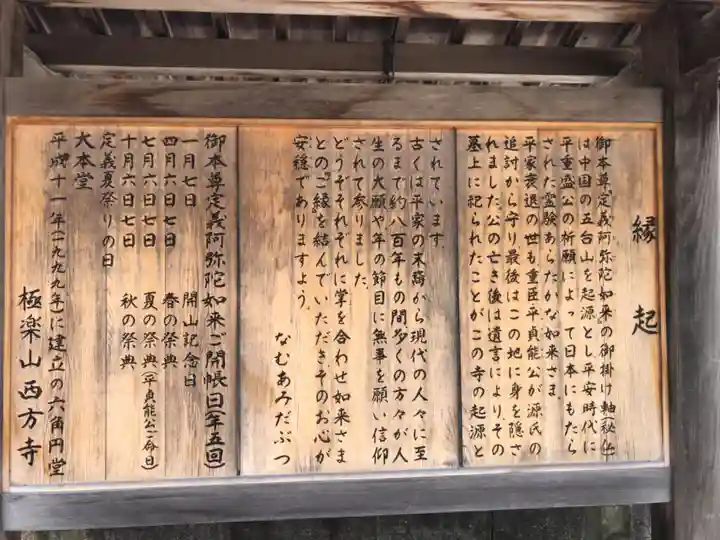 縁起
御本尊『定義阿弥陀如来の御掛け軸(秘仏)』
は中国の五台山を起源とし平安時代に
平重盛公の祈願によって日本にもたら
された霊験あらたかな如来さま
平家衰退の世も重臣平貞能公が源氏の
追討から守り最後はこの地に身を隠さ
れました公の亡き後は遺言によりその
墓上に祀られたことがこの寺の起源と
されています。
古くは平家の末裔から現代の人々に至
るまで約八百年もの間多くの方々が人
生の大願や年の節目に無事を願い信仰
されて参りました。
どうぞそれぞれに掌を合わせ如来さま
との"ご縁"を結んでいただきそのお心が
安穏でありますよう。
なむあみだぶつ
御本尊定義阿弥陀如来ご開帳日(年五回)
一月七日 開山記念日
四月六日七日 春の祭典
七月六日七日 夏の祭典(平貞能公ご命日)
十月六日七日 秋の祭典
定義夏祭りの日
大本堂
平成十一年(一九九九年)に建立の六角円堂
極楽山西方寺